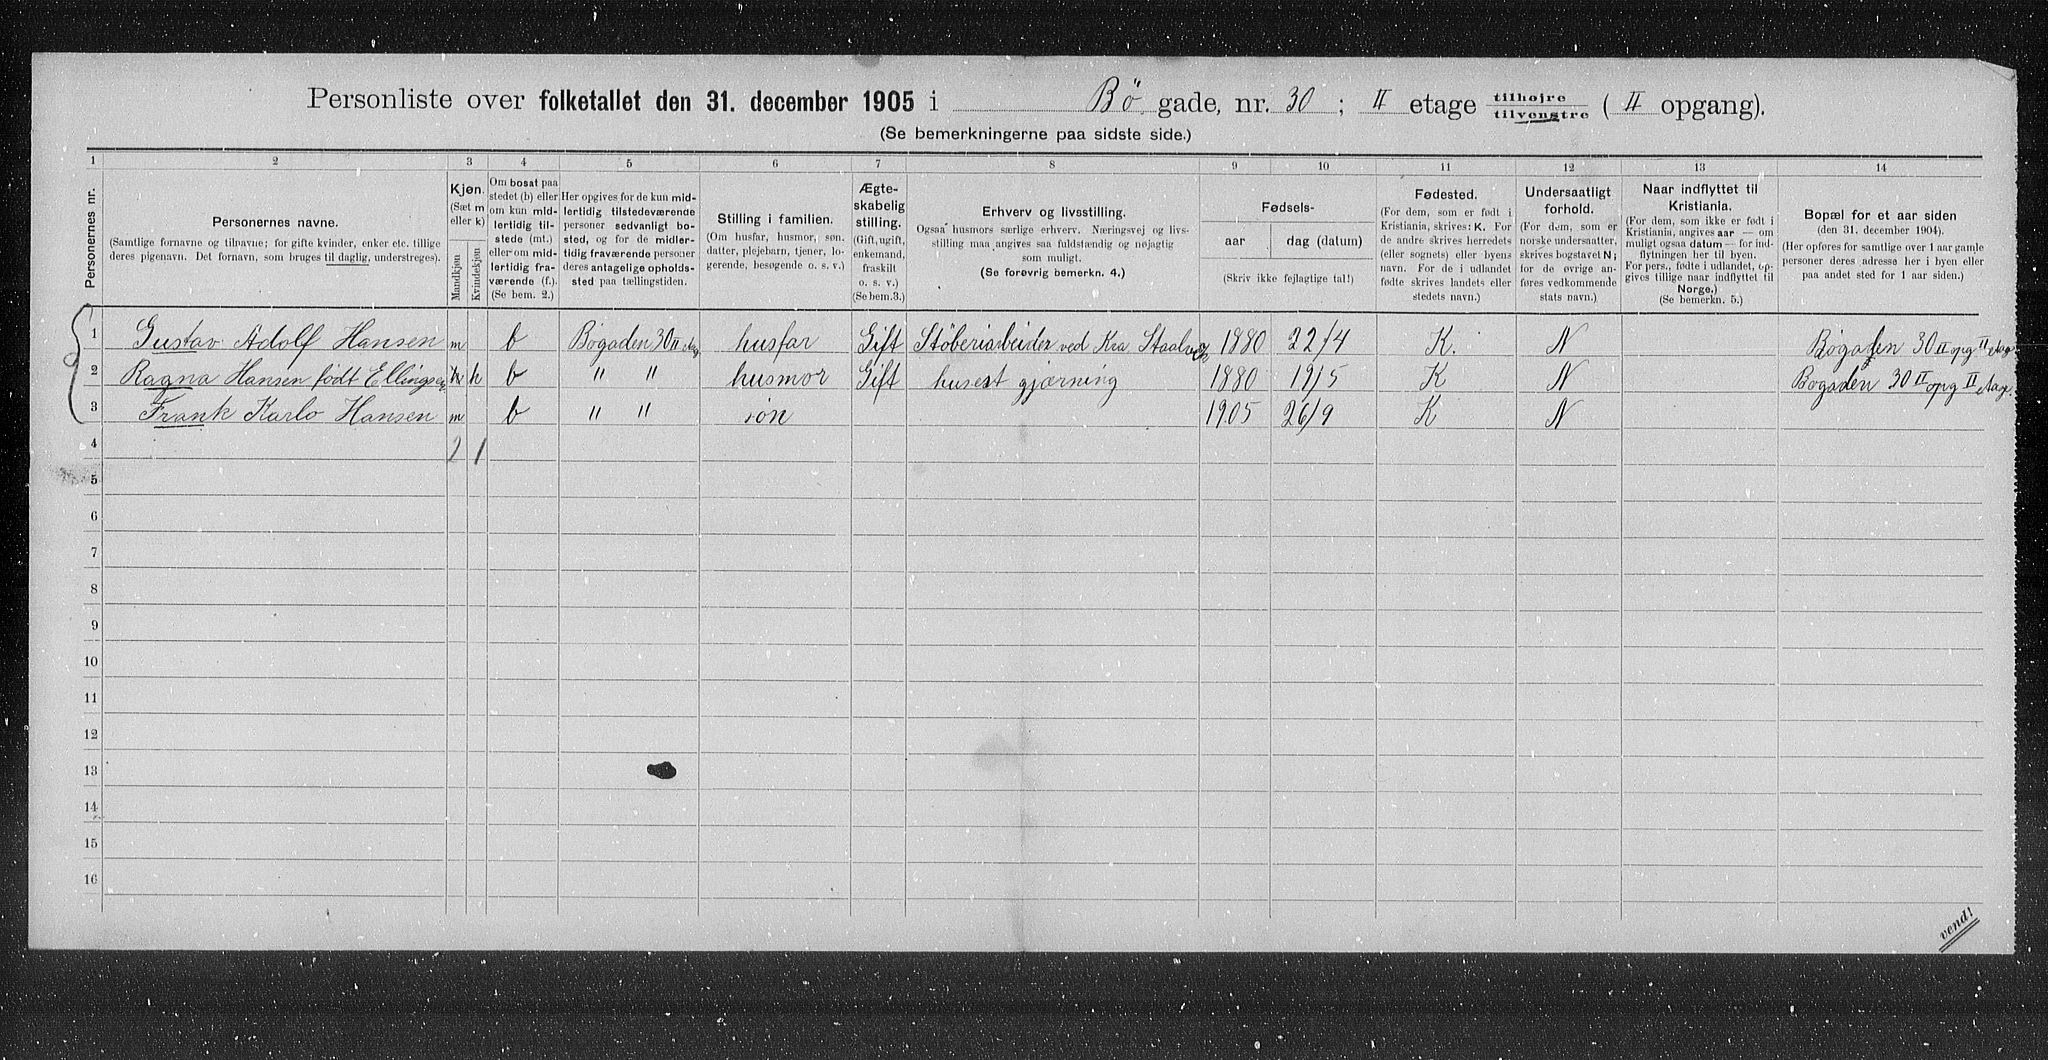 Personliste over folketallet den 31. december 1905 i Bø gade, nr. 30 ; II etage tilhøjre tilvenstre ( II opgang).
(Se bemerkningerne paa sidste side.)
1 2 3 4 5 6 7 8 9 10 11 12 13 14
Personernes nr.
Personernes navne.
(Samtlige fornavne og tilnavne; for gifte kvinder, enker etc. tillige
deres pigenavn. Det fornavn, som bruges til daglig, understreges).
Kjøn.
(Sæt m
eller k)
Mandkjøn
Kvindekjøn
Om bosat paa
stedet (b) eller
om kun mid-
lertidig til-
stede (mt.)
eller om mid-
lertidig fra-
værende (f.).
(Se bem. 2.)
Her opgives for de kun mid-
lertidig tilstedeværende
personer sedvanligt bo-
sted, og for de midler-
tidig fraværende personer
deres antagelige opholds-
sted paa tællingstiden.
Stilling i familien.
(Om husfar, husmor, søn,
datter, plejebarn, tjener, lo-
gerende, besøgende o. s. v.)
Ægte-
skabelig
stilling.
(Gift, ugift,
enkemand,
fraskilt
o. s. v.)
(Se bem.3.)
Erhverv og livsstilling.
Ogsaa husmors særlige erhverv. Næringsvej og livs-
stilling maa angives saa fuldstændig og nøjagtig
som muligt.
(Se forøvrig bemerkn. 4.)
Fødsels-
aar
dag (datum)
(Skriv ikke fejlagtige tal!)
Fødested.
(For dem, som er født i
Kristiania, skrives: K. For
de andre skrives herredets
(eller sognets) eller byens
navn. For de i udlandet
fødte skrives landets eller
stedets navn.)
Undersaatligt
forhold.
(For dem, som er
norske undersaatter,
skrives bogstavet N;
for de øvrige an-
føres vedkommende
stats navn.)
Naar indflyttet til
Kristiania.
(For dem, som ikke er født i
Kristiania, angives aar — om
muligt ogsaa datum — for ind-
flytningen her til byen.
For pers., født i udlandet, op-
gives tillige naar indflyttet til
Norge.)
(Se bemerkn. 5.)
Bopæl for et aar siden
(den 31. december 1904).
(Her opføres for samtlige over 1 aar gamle
personer deres adresse her i byen eller
paa andet sted for 1 aar siden.)
1 Gustav Adolf Hansen m b Bøgaden 30 II etag husfar Gift Støberiarbeider ved Kra Staalv 1880 22/4 K. N Bøgaden 30 II opg II etag.
2 Ragna Hansen født Ellingsen k b " " husmor Gift huset gjærning 1880 19/5 K N Bøgaden 30 II opg II etag.
3 Frank Karlo Hansen m b " " søn 1905 26/9 K N
4 2 1
5
6
7
8
9
10
11
12
13
14
15
16
vend!